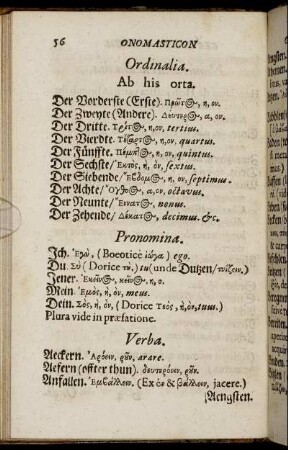 56 ONOMASTICON
Ordinalia.
Ab his orta.
Der Vorderste (Erste). Πρῶτος, η, ον.
Der Zweyte (Andere). Δεύτερος, α, ον.
Der Dritte. Τρίτος, η, ον, tertius.
Der Vierdte. Τέταρτος, η, ον, quartus.
Der Fünffte. Πέμπτος, η, ον, quintus.
Der Sechste/ Ἕκτος, ή, όν, sextus.
Der Siebende/ Ἕβδομος, η, ον, septimus.
Der Achte/ Ὄγδοος, α, ον, octavus.
Der Neunte/ Ἔννατος, nonus.
Der Zehende/ Δέκατος, decimus. &c.
Pronomina.
Jch. Ἐγώ, (Boeoticè ἰώγα) ego.
Du. Σύ (Dorice τύ.) tu (unde Dutzen/ τυίζειν.)
Jener. Ἐκεῖνος, κεῖνος, η, ο.
Mein. Ἐμός, ή, όν, meus.
Dein. Σός, ή, όν, (Dorice Τεός, ή, όν, tuus.)
Plura vide in præfatione.
Verba.
Aeckern. Ἀρόειν, ροῦν, arare.
Aefern (offter thun). δευτερόειν, ροῦν.
Anfallen. Ἐμβάλλειν. (Ex ἐν & βάλλειν, jacere.)
Aengsten.